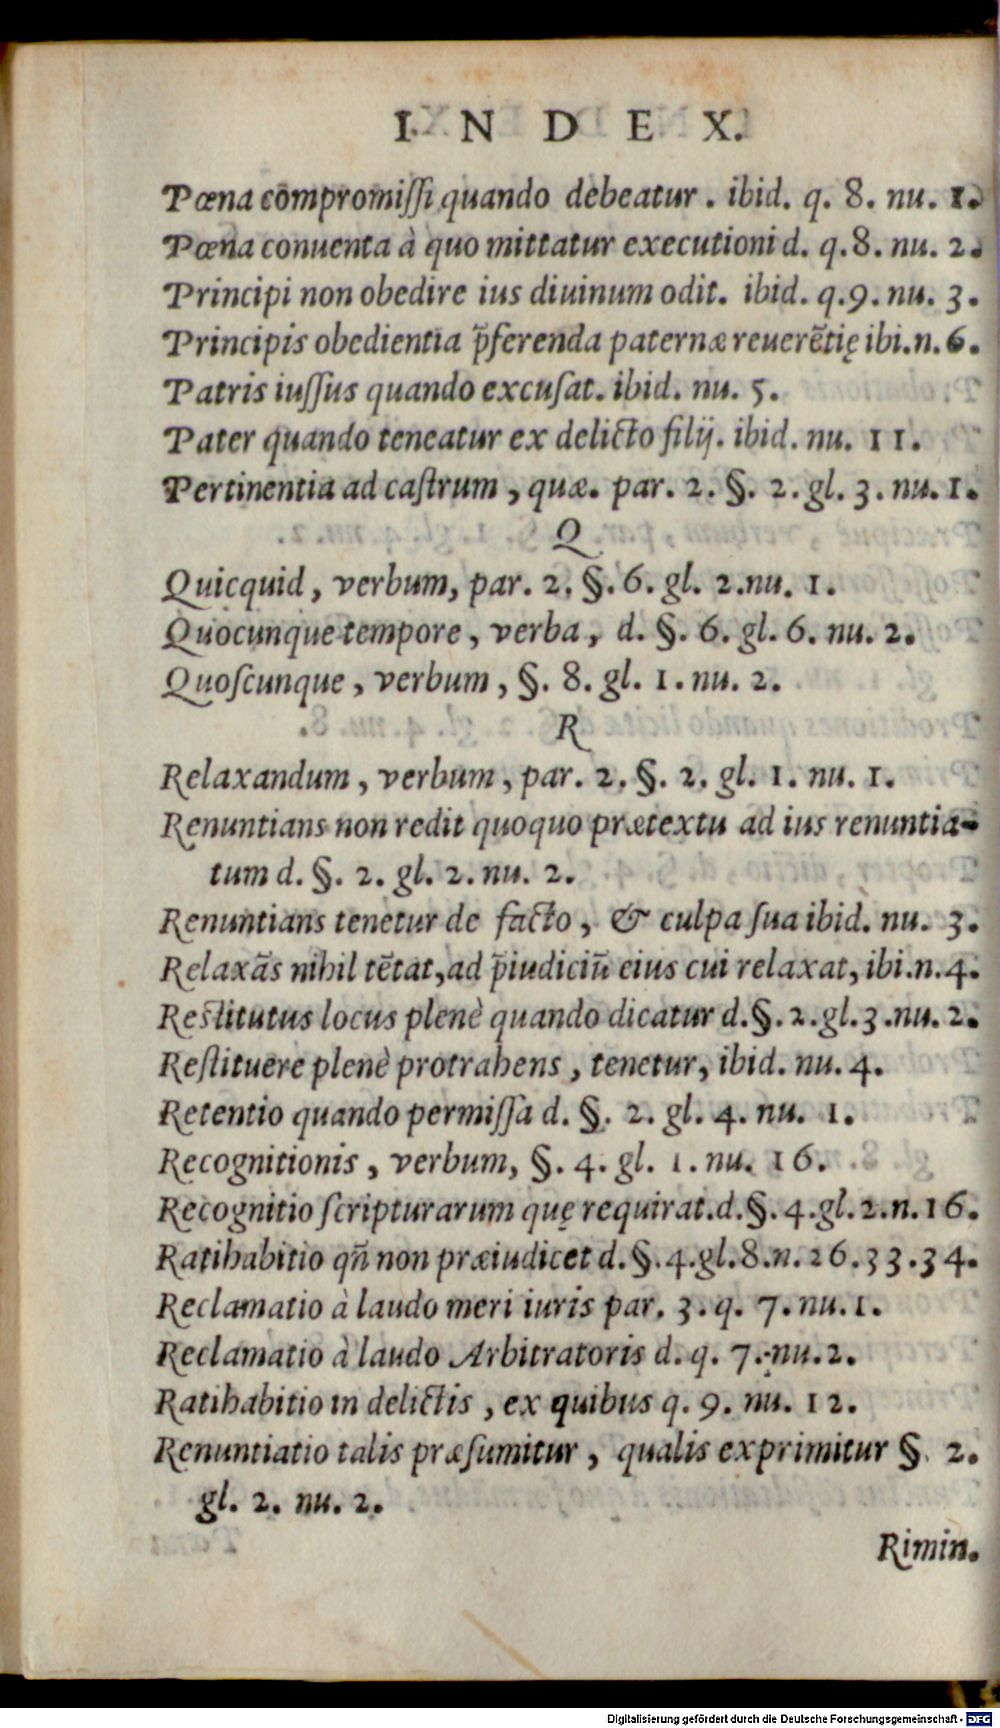 INDEX.
Pœna compromiſſi quando debeatur. ibid. q. 8. nu. 1.
Pœna conuenta à quo mittatur executioni d. q. 8. nu. 2.
Principi non obedire ius diuinum odit. ibid. q. 9. nu. 3.
Principis obedientia p̃ferenda paternæ reuerẽtię ibi. n. 6.
Patris iuſſus quando excuſat. ibid. nu. 5.
Pater quando teneatur ex delicto filij. ibid. nu. 11.
Pertinentia ad caſtrum, quæ. par. 2. §. 2. gl. 3. nu. 1.
Q
Quicquid, verbum, par. 2. §. 6. gl. 2. nu. 1.
Quocunque tempore, verba, d. §. 6. gl. 6. nu. 2.
Quoſcunque, verbum, §. 8. gl. 1. nu. 2.
R
Relaxandum, verbum, par. 2. §. 2. gl. 1. nu. 1.
Renuntians non redit quoquo prætextu ad ius renuntia-
tum d. §. 2. gl. 2. nu. 2.
Renuntians tenetur de facto, & culpa ſua ibid. nu. 3.
Relaxãs nihil tẽtat, ad p̃iudiciũ eius cui relaxat, ibi. n. 4.
Reſtitutus locus plenè quando dicatur d. §. 2. gl. 3. nu. 2.
Reſtituere plenè protrahens, tenetur, ibid. nu. 4.
Retentio quando permiſſa d. §. 2. gl. 4. nu. 1.
Recognitionis, verbum, §. 4. gl. 1. nu. 16.
Recognitio ſcripturarum quę requirat. d. §. 4. gl. 2. n. 16.
Ratihabitio qñ non præiudicet d. §. 4. gl. 8. n. 26. 33. 34.
Reclamatio à laudo meri iuris par. 3. q. 7. nu. 1.
Reclamatio à laudo Arbitratoris d. q. 7. nu. 2.
Ratihabitio in delictis, ex quibus q. 9. nu. 12.
Renuntiatio talis præſumitur, qualis exprimitur §. 2.
gl. 2. nu. 2.
Rimin.
Digitalisierung gefördert durch die Deutsche Forschungsgemeinschaft - DFG